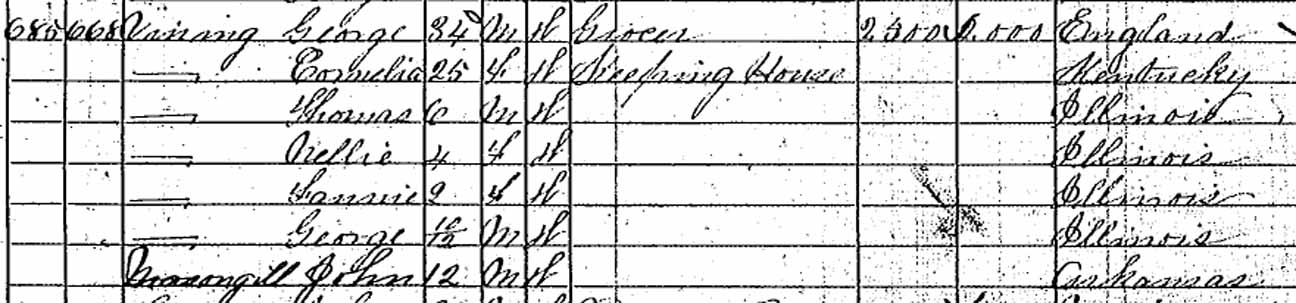 685 668 Vining George 34 M W Grocer 2.500 2.000 England
— Cornelia 25 F W Keeping House Kentucky
— Thomas 6 M W Illinois
— Nellie 4 F W Illinois
— Fannie 2 F W Illinois
— George 10/12 M W Illinois
John 12 M W Arkansas